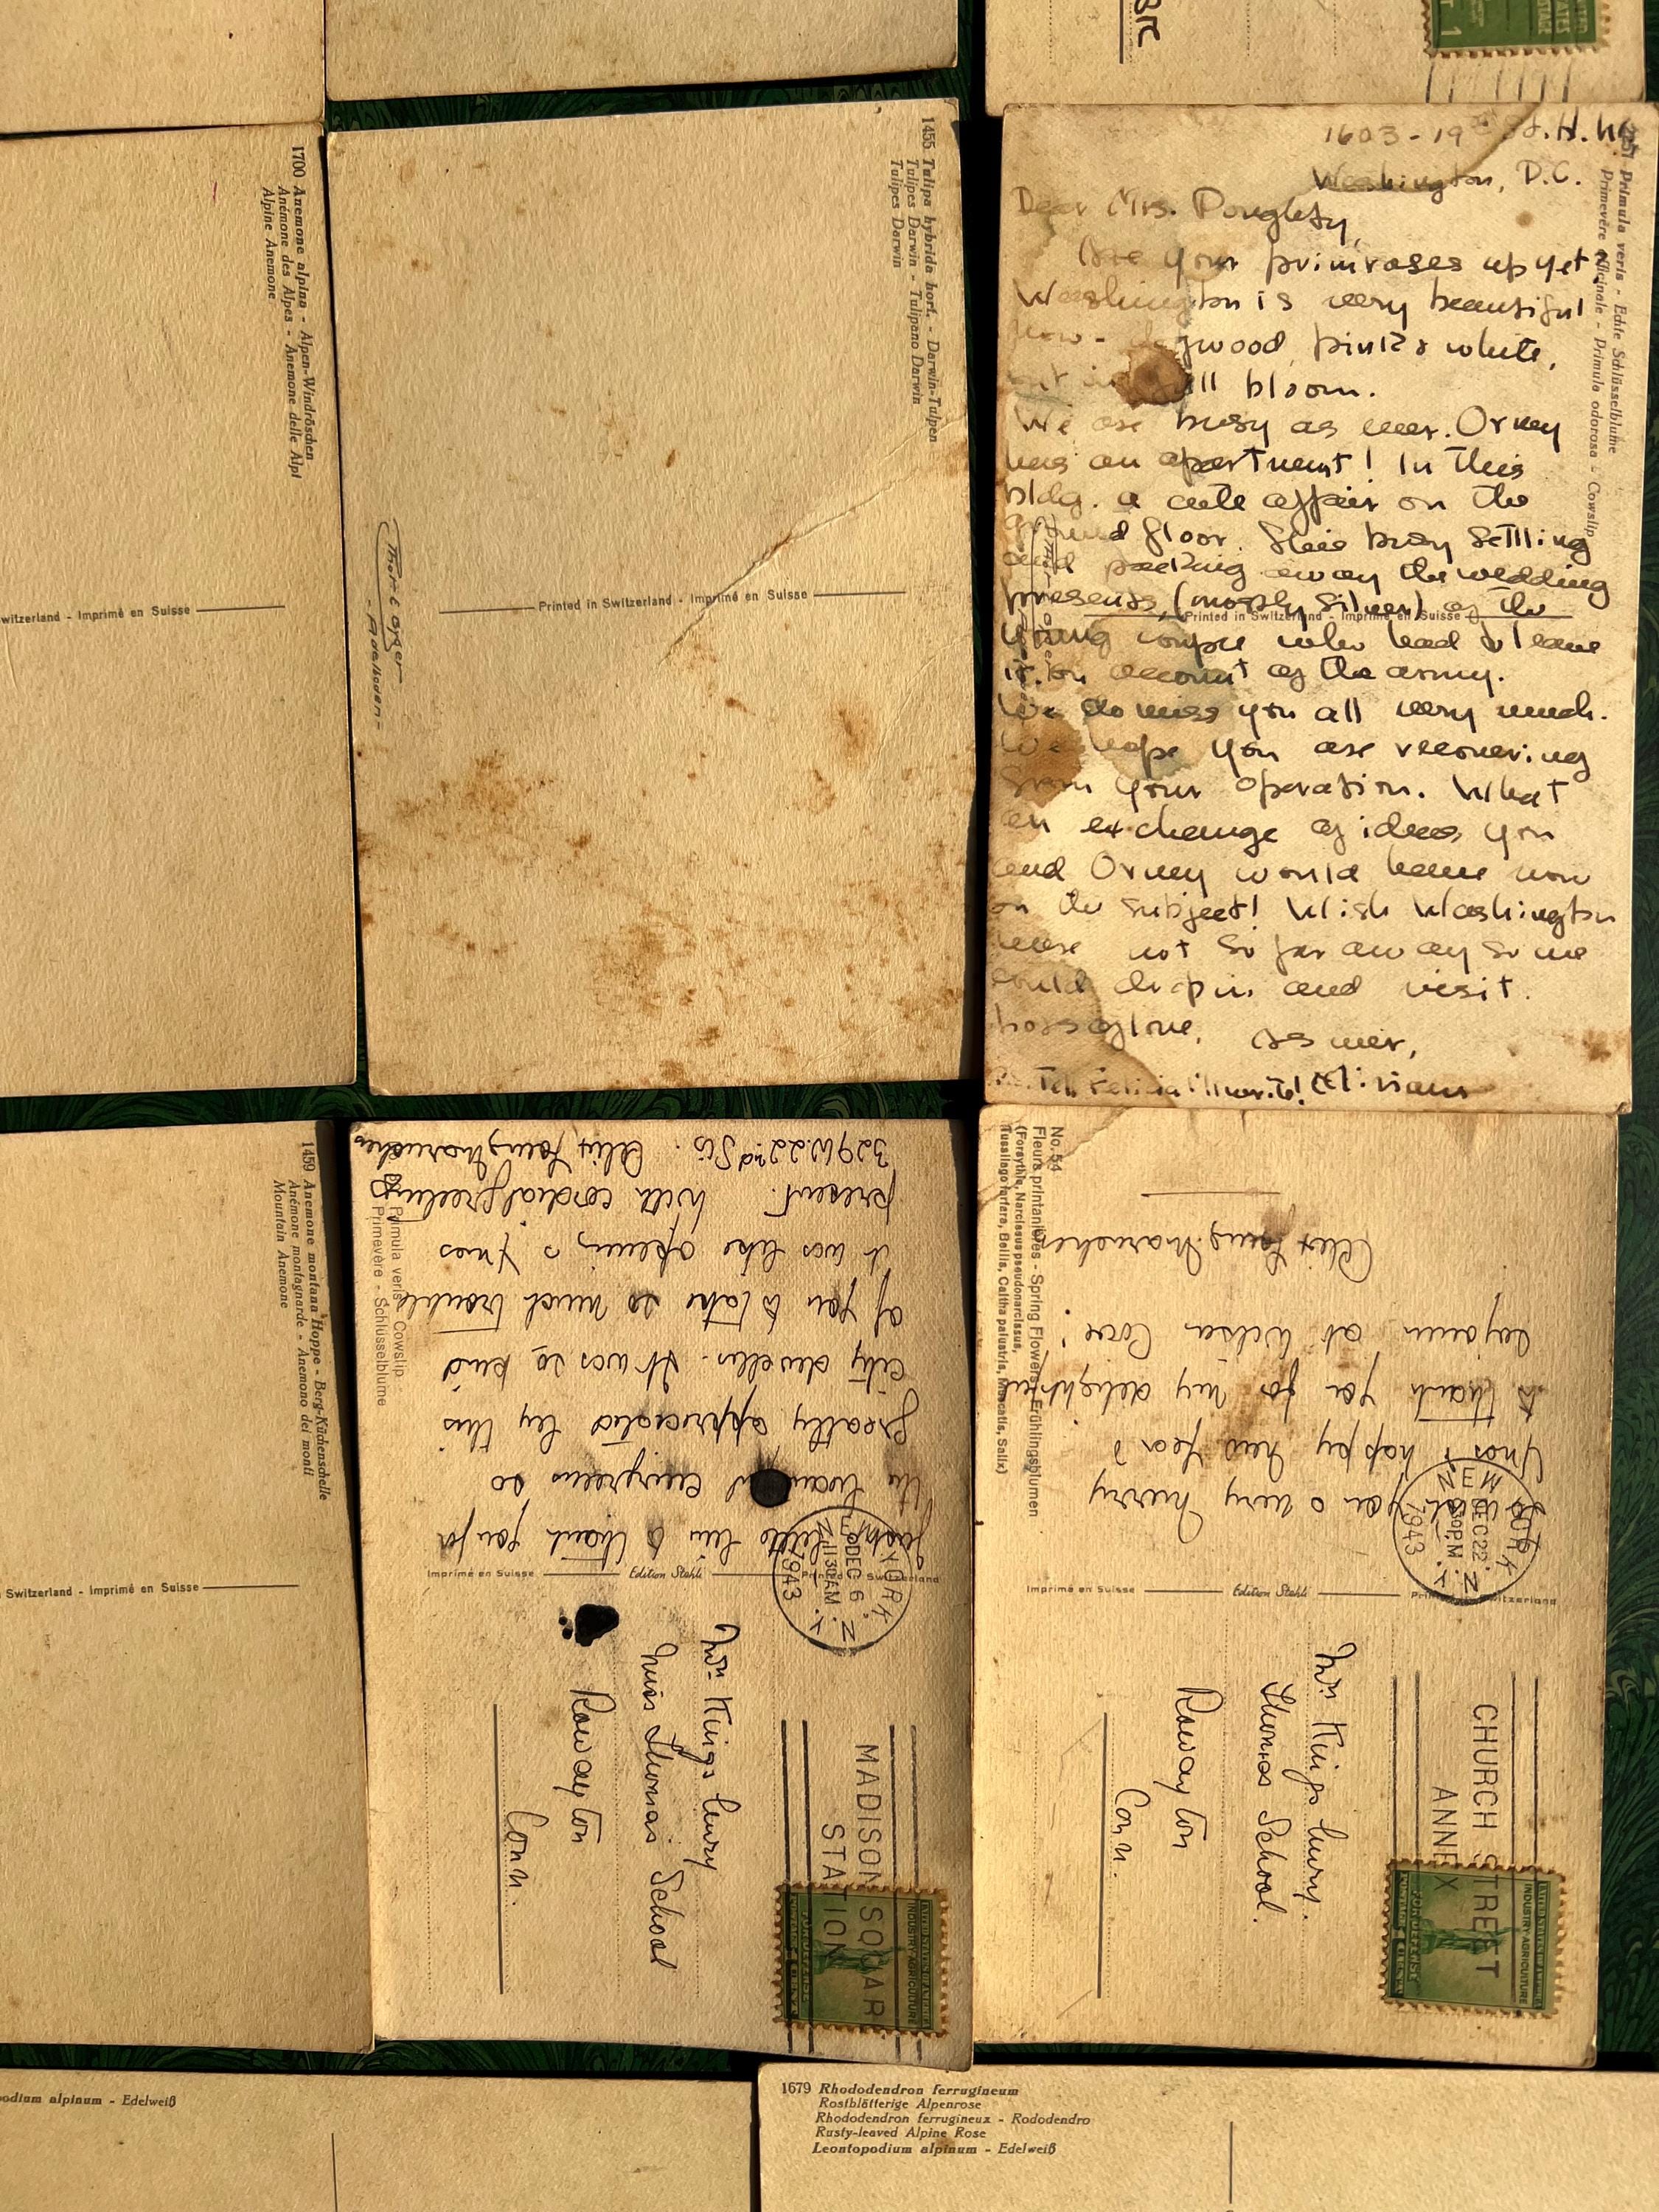 1700 Anemone alpina - Alpen-Windröschen
Anémone des Alpes - Anemone delle Alpi
Alpine Anemone
witzerland - Imprimé en Suisse
- Adelboden -
1455 Tulipa hybrida hort. - Darwin-Tulpen
Tulipes Darwin - Tulipano Darwin
Tulipes Darwin
Printed in Switzerland - Imprimé en Suisse
1603 - 19
Washington, D.C.
Primula veris - Echte Schlüsselblume
Primevère officinale - Primula odorosa - Cowslip
Dear Mrs.
Are your primroses up yet?
Washington is very beautiful
now - dogwood, pink & white,
out in full bloom.
We are busy as ever. Ormy
has an apartment! In this
bldg. a cute affair on the
ground floor. She is busy settling
and packing away the wedding
presents, (mostly silver) of the
Printed in Switzerland - Imprimé en Suisse
young couple who had to leave
it on account of the army.
We do miss you all very much.
We hope you are recovering
from your operation. What
an exchange of ideas you
and Ormy would have now
on the subject! Wish Washington
were not so far away so we
could drop in and visit.
Loads of love, As ever,
1459 Anemone montana Hoppe - Berg-Küchenschelle
Anémone montagnarde - Anemone dei monti
Mountain Anemone
Switzerland - Imprimé en Suisse
Primula veris - Cowslip -
Primevère - Schlüsselblume
Just a little line to thank you for
the evergreens so
greatly appreciated by this
city dweller. It was so kind
of you to take so much trouble
it was like opening a Xmas
present. With cordial greetings
329 W. 22nd St.
Imprimé en Suisse Edition Stehli Printed in Switzerland
YORK, N.Y.
DEC 6
11 30 AM
1943
Mrs Kings
Miss Thomas School
Rowayton
Conn.
MADISON SQUARE
STATION
UNITED STATES OF AMERICA
INDUSTRY AGRICULTURE
FOR DEFENSE
No. 54
Fleurs printanières - Spring Flowers - Frühlingsblumen
(Forsythia, Narcissus pseudonarcissus,
Tussilago farfara, Bellis, Caltha palustris, Muscatis, Salix)
to wish you a very merry
Xmas & happy New Year &
to thank you for my delightful
sojourn at Wilson Cove!
Imprimé en Suisse Edition Stehli Printed in Switzerland
YORK, N.Y.
DEC 22
30 PM
1943
Mrs Kings
Thomas School.
Rowayton
Conn.
CHURCH STREET
ANNEX
UNITED STATES OF AMERICA
INDUSTRY AGRICULTURE
FOR DEFENSE
podium alpinum - Edelweiß
1679 Rhododendron ferrugineum
Rostblätterige Alpenrose
Rhododendron ferrugineux - Rododendro
Rusty-leaved Alpine Rose
Leontopodium alpinum - Edelweiß